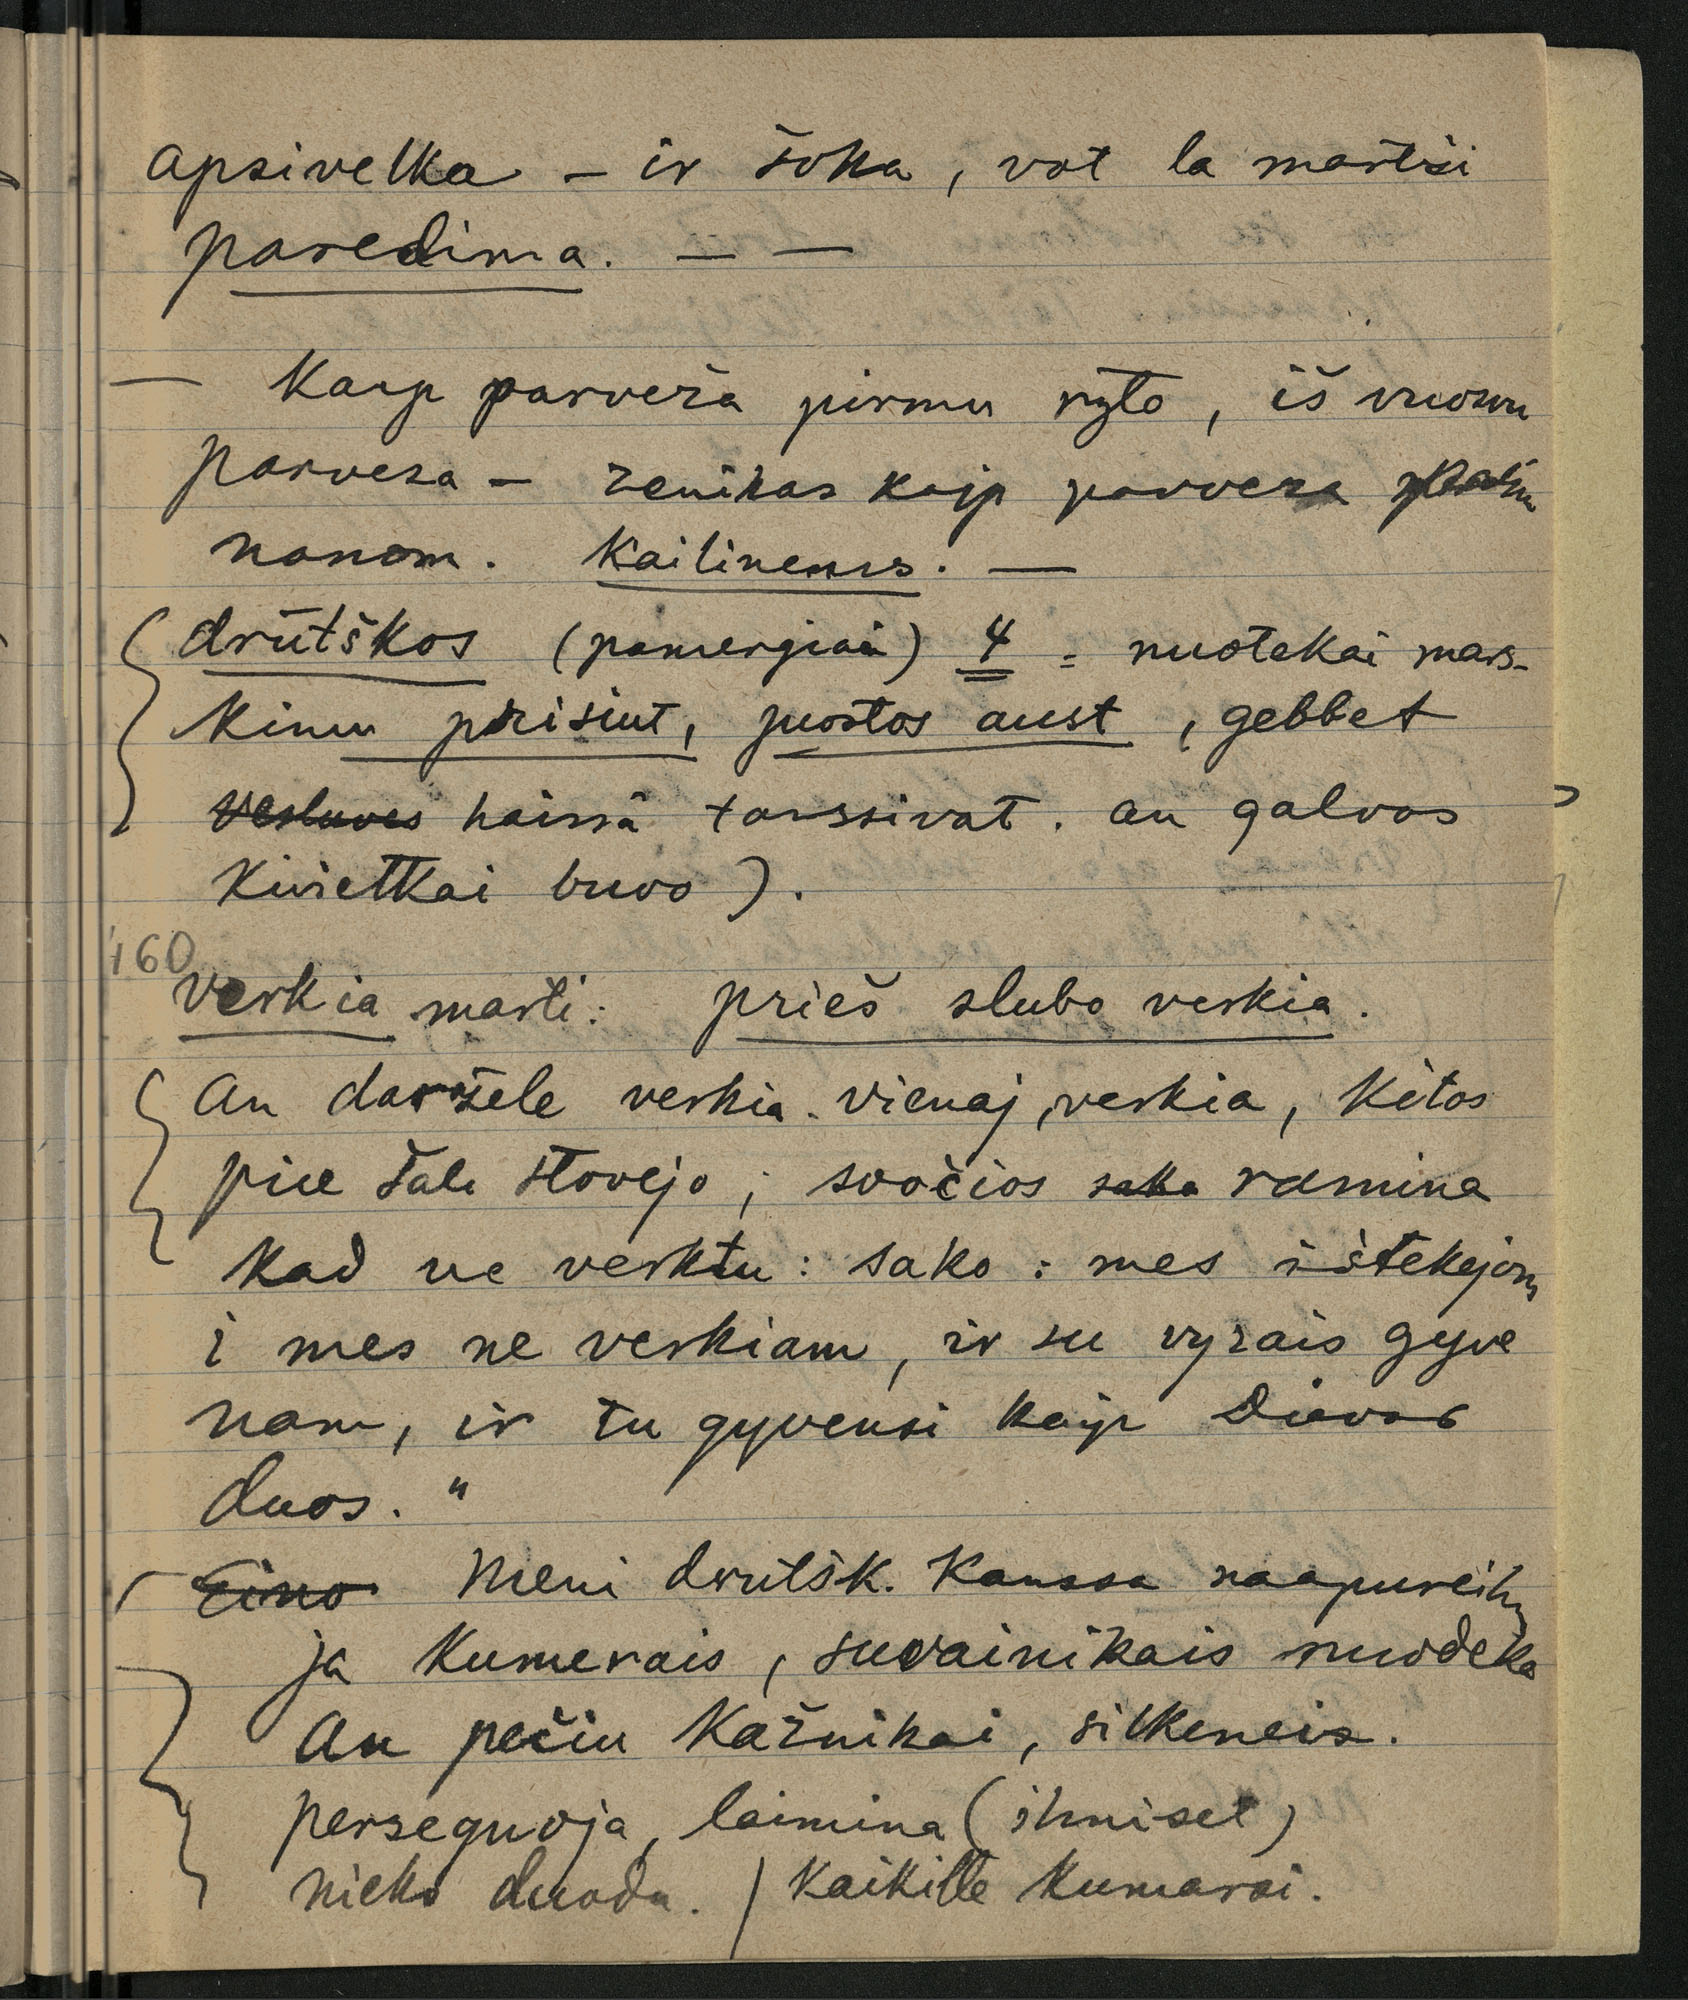 apsivelka – ir šoka, vot la martši
paredima. — —
— Kaip parveža pirmu ryto, iš
parveza – ženikas kaip parveza
nanom. Kailinenis. —
drūtškos (pamergiai) 4 = nuotakai mars-
kinu prisiut, juostos aust, gebbet
häissä tanssivat. an galvos
kvietkai buvo).
160
Verkia marti: prieš slubo verkia.
An daržele verkia. vienaj, verkia, kitos
pue šali stovėjo; svočios saka ramina
kad ne verktu: sako: mes ištekejom
i mes ne verkiam, ir su vyrais gyve
nam, ir tu gyvensi kaip Dievas
duos."
Eino Meni drutšk. Kanssa naapureihin
ja Kumerais, suvainikais nuodeka
An pečiu Kažnikai, silkeneis.
persegnoja, laimina (ihmiset)
nieko duoda. / Kaikille Kumarsi.